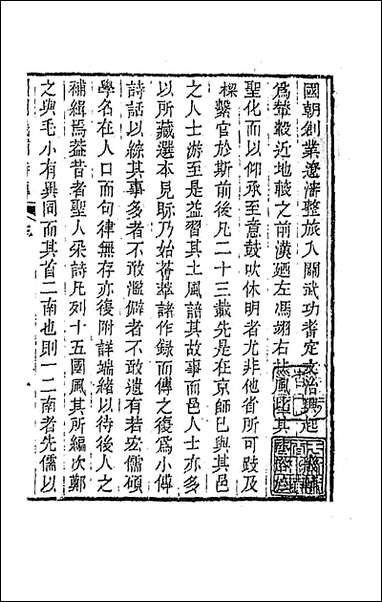 國朝創業遼瀋整旅入關武功耆定文治興起
爲輦轂近地骸之前漢廼左馮翊右扶風比其
聖化而以仰承至意鼓吹休明者尤非他省所可跂及
樑繫官於斯前後凡二十三載先是在京師已與其邑
之人士游至是益習其土風諳其故事而邑人士亦多
以所藏選本見眎乃始薈萃諸作録而傳之復爲小傳
詩話以綜其事多者不敢濫僻者不敢遺有若宏儒碩
學名在人口而句律無存亦復附詳端緒以待後人之
補緝焉蓋昔者聖人釆詩凡列十五國風其所編次鄭
之與毛小有異同而其首二南也則一二南者先儒以